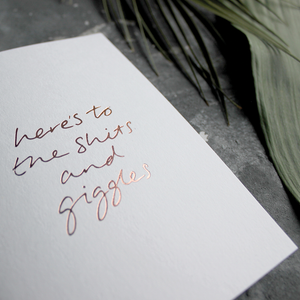 here's to
the shits
and
giggles